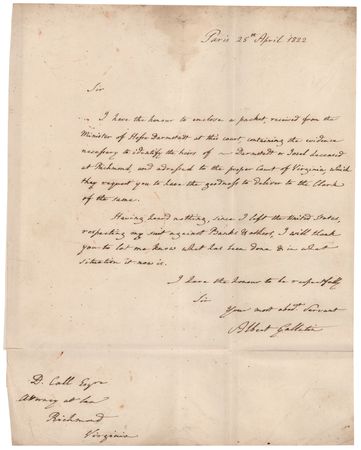 Paris 25th April 1822
Sir
I have the honour to enclose a packet, received from the
Minister of Hesse Darmstadt at this court, containing the evidence
necessary to identify the heirs of Darmstadt or Israel deceased
at Richmond, and adressed to the proper Court of Virginia, which
they request you to have the goodness to deliver to the Clerk
of the same.
Having heard nothing, since I left the United States,
respecting my suit against Banks & others, I will thank
you to let me know what has been done & in what
situation it now is.
I have the honour to be respectfully
Sir
Your most obedt. Servant
Albert Gallatin
D. Call Esqr
Attorney at law
Richmond
Virginia